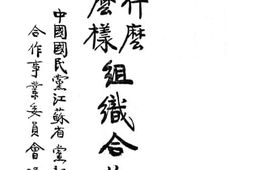 什麼
麼樣
組織合
中國國民黨江蘇省黨
合作事業委員會